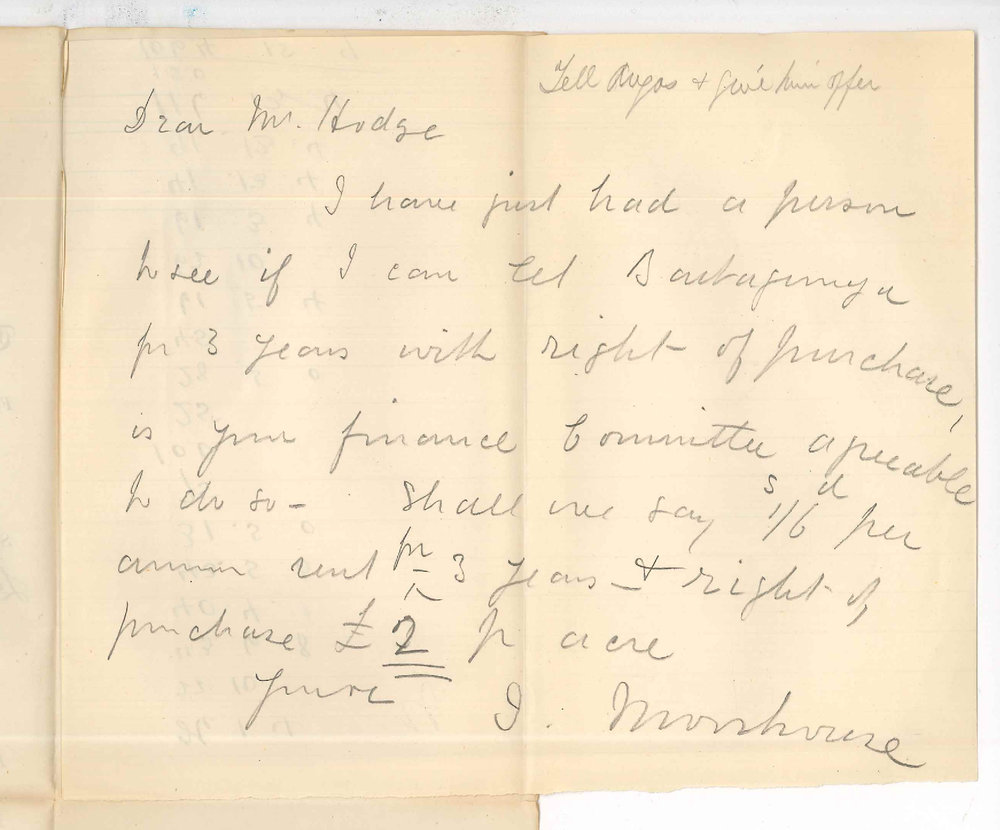 Tell Angas & give him offer
Dear Mr. Hodge
I have just had a person
to see if I can let
for 3 years with right of purchase,
is your finance Committee agreeable
to do so - Shall we say 1/6 s d per
annum rent for 3 years - & right of
purchase £2 pr acre
Yours
J. Moorhouse